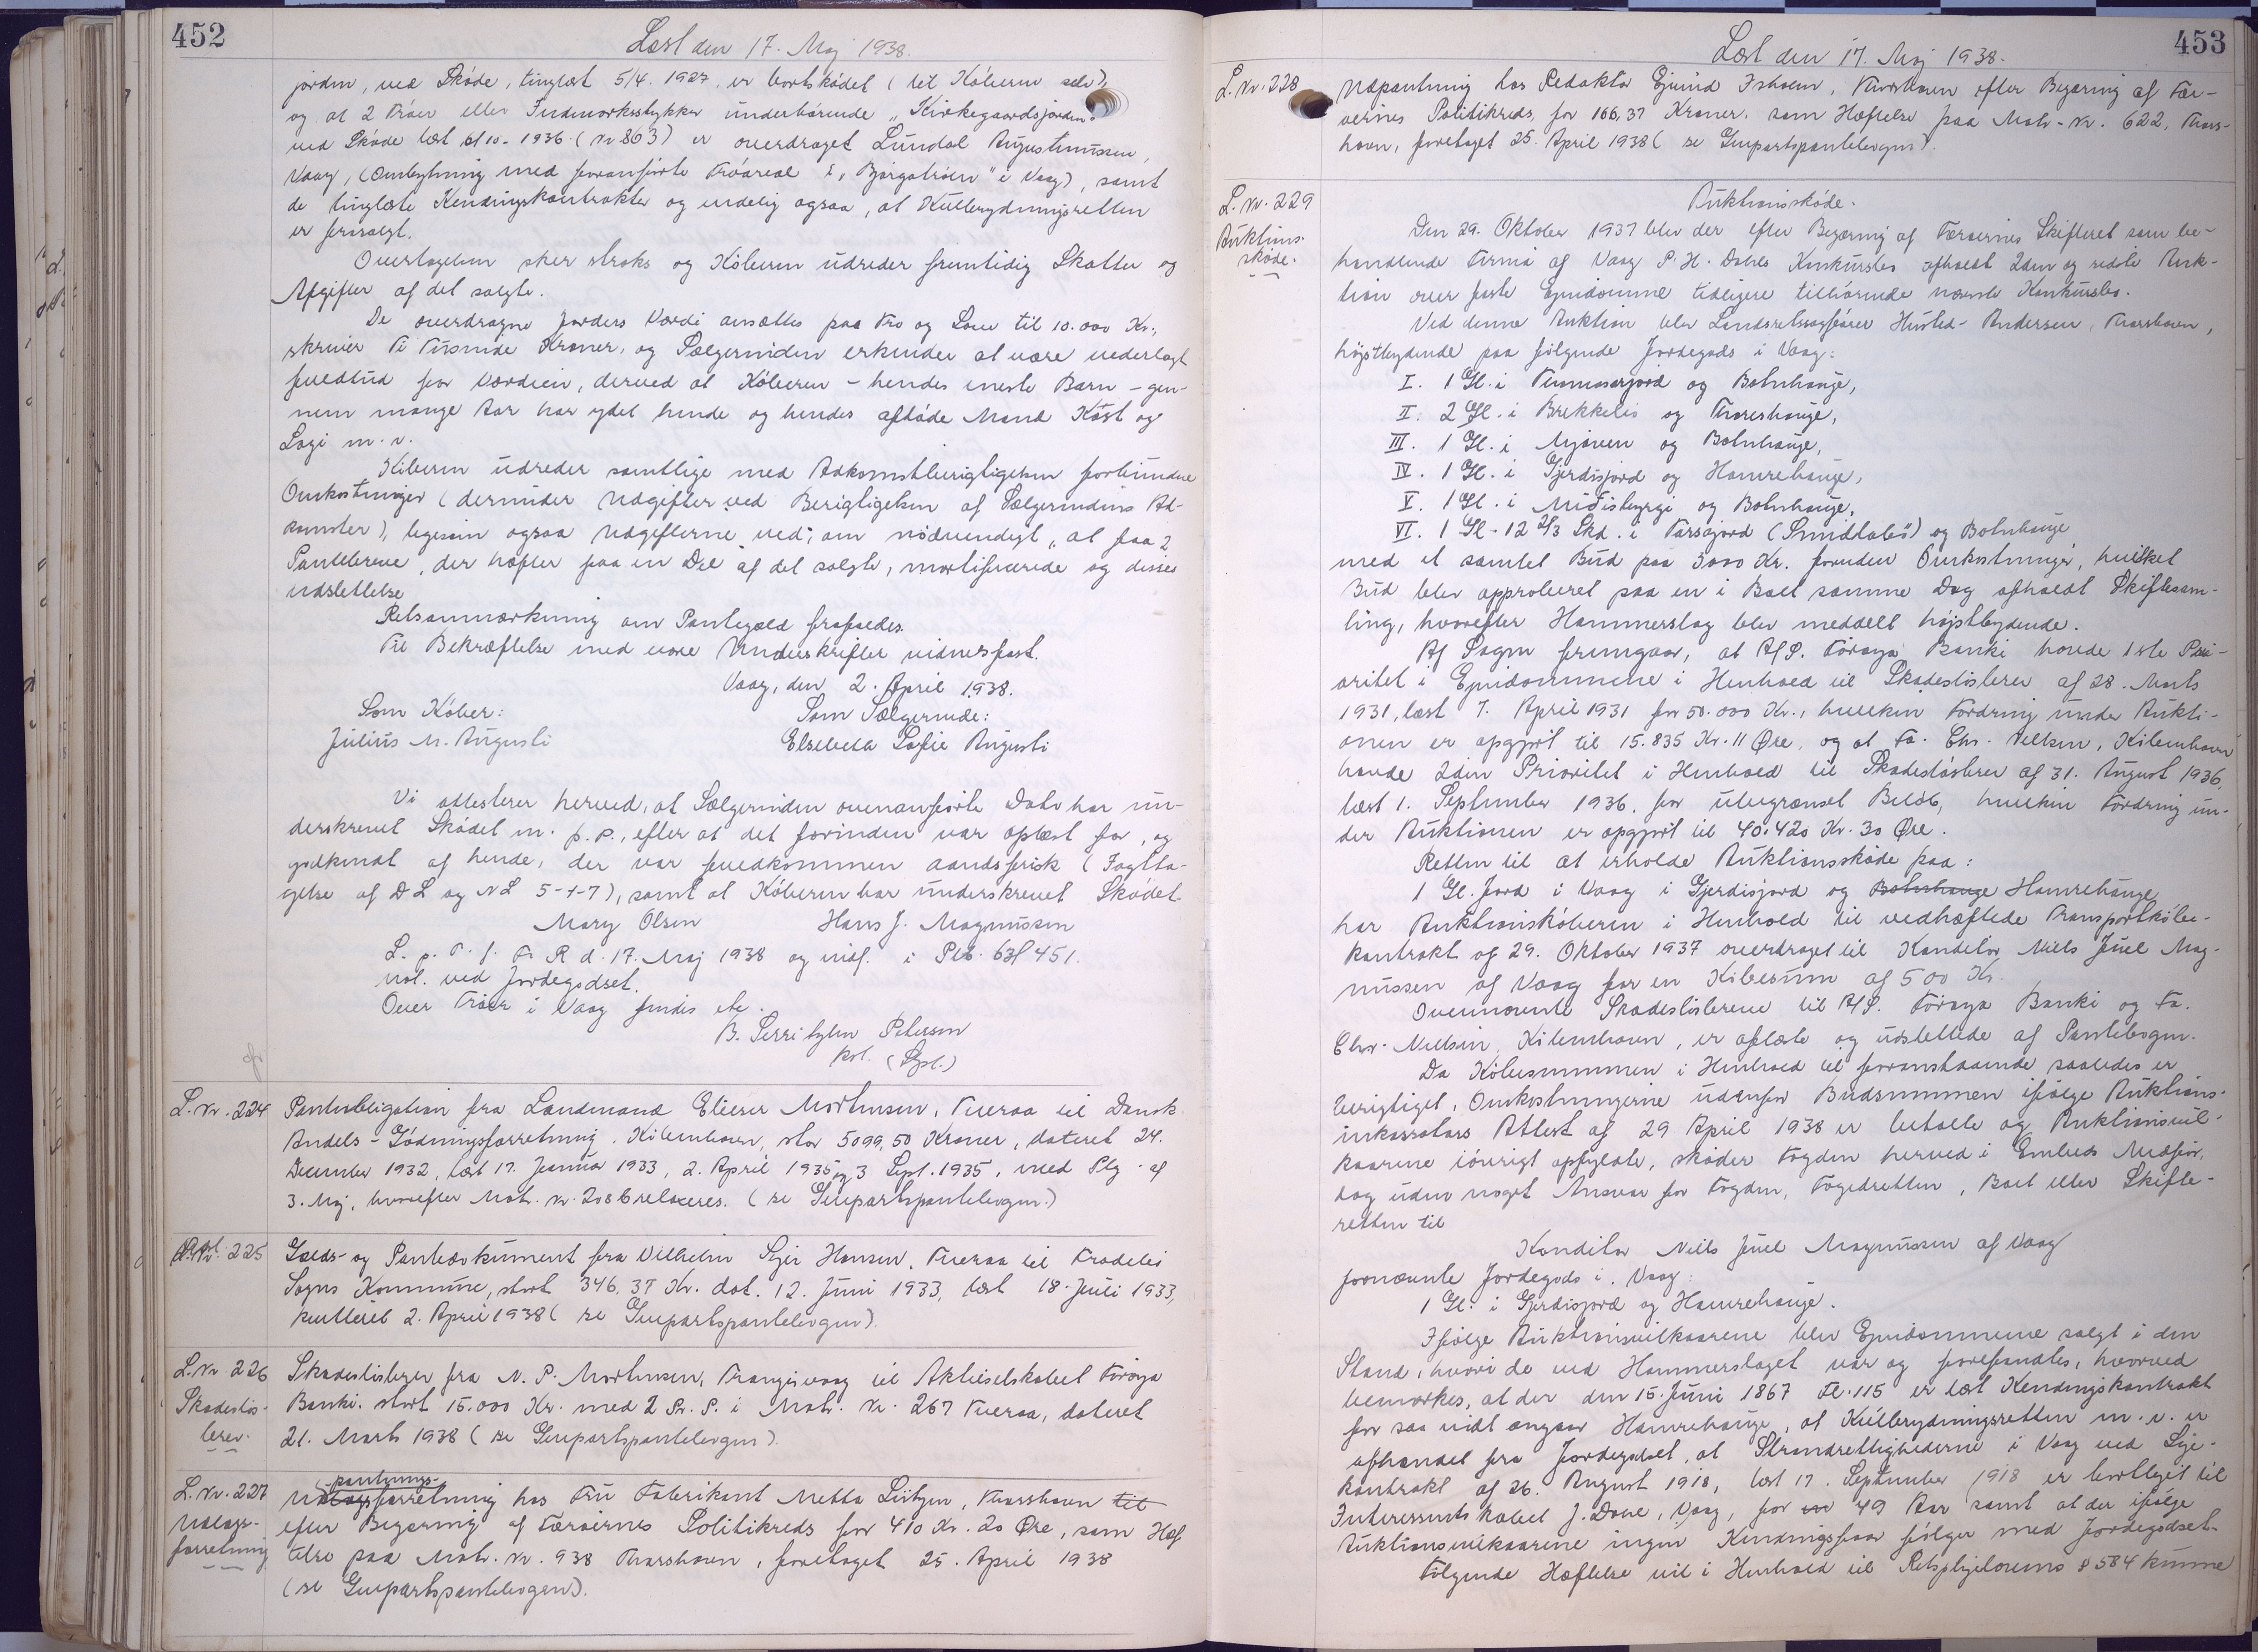 452
Læst den 17. Maj 1938.
jorden, ved Skøde, tinglæst 5/4. 1927, er bortskødet (til Køberen selv),
og at 2 Trøer eller Indmarksstykker underhørende "Kirkegaardsjorden"
ved Skøde læst 6/10. 1936 (Nr 863) er overdraget Lundal Augustinussen,
Vaag, (Ombytning med foranførte Trøareal i "Bjargatrøen" i Vaag), samt
de tinglæste Kendingskontrakter og endelig ogsaa, at Kulbrydningsretten
er frasolgt.
Overtagelsen sker straks og Køberen udreder fremtidig Skatter og
Afgifter af det solgte.
De overdragne Jorders Værdi ansættes paa Tro og Love til 10.000 Kr.,
skriver Ti Tusinde Kroner, og Sælgerinden erkender at være vederlagt
fuldtud for Værdien, derved at Køberen - hendes eneste Barn - gen-
nem mange Aar har ydet hende og hendes afdøde Mand Kost og
Logi m. v.
Køberen udreder samtlige med Adkomstberigtigelsen forbundne
Omkostninger (derunder Udgifter ved Berigtigelsen af Sælgerindens Ad-
komster), ligesom ogsaa Udgifterne ved, om nødvendigt, at faa 2
Pantebreve, der hæfter paa en Del af det solgte, mortificerede og disses
Udslettelse
Retsanmærkning om Pantegæld frafaldes.
Til Bekræftelse med vore Underskrifter vidnesfast.
Vaag, den 2. April 1938.
Som Køber: Som Sælgerinde:
Julius M. Augusti Elsebeda Sofie Augusti
Vi attesterer herved, at Sælgerinden ovenanførte Dato har un-
derskrevet Skødet m. p. p., efter at det forinden var oplæst for, og
godkendt af hende, der var fuldkommen aandsfrisk (Iagtta-
gelse af DL og NL 5-1-7), samt at Køberen har underskrevet Skødet.
Mary Olsen Hans J. Magnussen
L. p. T. f. F. R d. 17. Maj 1938 og indf. i Ptb. 63 f 451.
not. ved Jordegodset.
Over Trøer i Vaag findes etc.
B. Serritzlew Petersen
kst. (Sgl.)
L. Nr. 224 Panteobligation fra Landmand Elieser Mortensen, Tveraa til Dansk
Andels-Gødningsforretning, København, stor 5099,50 Kroner, dateret 24.
December 1932, læst 17. Januar 1933, 2. April 1935 og 3 Sept. 1935, med Ptg. af
3. Maj, hvorefter Matr. Nr. 208 b relaxeres. (se Genpartspantebogen.)
225 Gælds- og Pantedokument fra Vilhelm Hansen, Tveraa til Frodebø
Sogns Kommune, stort 346,37 Kr. dat. 12. Juni 1933, læst 18. Juli 1933,
kvitteret 2. April 1938 (se Genpartspantebogen).
L. Nr 226
Skadesløs-
brev.
Skadesløsbrev fra N. P. Mortensen, Trangisvaag til Aktieselskabet Føroya
Banki. stort 15.000 Kr. med 2 Pr. P. i Matr. Nr. 267 Tveraa, dateret
21. Marts 1938 (se Genpartspantebogen).
L. Nr. 227
Udlægs-
forretning
pantnings-
Udlægsforretning hos Fru Fabrikant Metta Lützen, Thorshavn til
efter Begæring af Færøernes Politikreds for 410 Kr. 20 Øre, som Hæf-
telse paa Matr. Nr. 938 Thorshavn, foretaget 25. April 1938
(se Genpartspantebogen).
453
Læst den 17. Maj 1938.
L. Nr. 228 Udpantning hos Redaktør Ejvind Isholm, Thorshavn efter Begæring af Fær-
øernes Politikreds, for 166,37 Kroner, som Hæftelse paa Matr. Nr. 622, Thors-
havn, foretaget 25. April 1938 (se Genpartspantebogen).
L. Nr. 229
Auktions-
skøde.
Auktionsskøde.
Den 29. Oktober 1937 blev der efter Begæring af Færøernes Skifteret som be-
handlende Firma af Vaag P. H. Dahls Konkursbo afholdt 2den og sidste Auk-
tion over faste Ejendomme tidligere tilhørende nævnte Konkursbo.
Ved denne Auktion blev Landsretssagfører Husted-Andersen, Thorshavn,
højstbydende paa følgende Jordegods i Vaag:
I. 1 Gl. i Timmasarjord og Botnhauge,
II. 2 Gl. i Brekkelis og Thoreshauge,
III. 1 Gl. i Mjøuen og Botnhauge,
IV. 1 Gl. i Gjerdisjord og Hamrehauge,
V. 1 Gl. i Midisbyrgi og Botnhauge,
VI. 1 Gl - 12 2/3 Skd. i Tarsajord (Smidtabø) og Botnhauge
med et samlet Bud paa 3000 Kr. foruden Omkostninger, hvilket
Bud blev approberet paa en i Boet samme Dag afholdt Skiftesam-
ling, hvorefter Hammerslag blev meddelt højstbydende.
Af Sagen fremgaar, at A/S. Føroya Banki havde 1ste Pri-
oritet i Ejendommene i Henhold til Skadesløsbrev af 28. Marts
1931, læst 7. April 1931 for 50.000 Kr., hvilken Fordring under Aukti-
onen er opgjort til 15.835 Kr. 11 Øre, og at Fa. Chr. Nielsen, København
havde 2den Prioritet i Henhold til Skadesløsbrev af 31. August 1936,
læst 1. September 1936. for ubegrænset Beløb, hvilken Fordring un-
der Auktionen er opgjort til 40.420 Kr. 30 Øre.
Retten til at erholde Auktionsskøde paa:
1 Gl. Jord i Vaag i Gjerdisjord og Botnhauge Hamrehauge
har Auktionskøberen i Henhold til vedhæftede Transportkøbe-
kontrakt af 29. Oktober 1937 overdraget til Konditor Niels Juel Mag-
nussen af Vaag for en Købesum af 500 Kr.
Ovennævnte Skadesløsbreve til A/S. Føroya Banki og Fa.
Chr. Nielsen, København, er aflæste og udslettede af Pantebogen.
Da Købesummen i Henhold til foranstaaende saaledes er
berigtiget, Omkostningerne udenfor Budsummen ifølge Auktions-
inkassators Attest af 29 April 1938 er betalte og Auktionsvil-
kaarene iøvrigt opfyldte, skøder Fogden herved i Embeds Medfør,
dog uden noget Ansvar for Fogden, Fogedretten, Boet eller Skifte-
retten til
Konditor Niels Juel Magnussen af Vaag
fornævnte Jordegods i Vaag:
1 Gl. i Gjerdisjord og Hamrehauge.
Ifølge Auktionsvilkaarene blev Ejendommene solgt i den
Stand, hvori de ved Hammerslaget var og forefandtes, hvorved
bemærkes, at der den 15. Juni 1867 Fl. 115 er læst Kendingskontrakt
for saa vidt angaar Hamrehauge, at Kulbrydningsretten m. v. er
afhændet fra Jordegodset, at Strandrettighederne i Vaag ved Leje-
kontrakt af 26. August 1918, læst 17. September 1918 er bortlejet til
Interessentskabet J. Dahl, Vaag, for en 49 Aar samt at der ifølge
Auktionsvilkaarene ingen Kendingsfaar følger med Jordegodset.
Følgende Hæftelse vil i Henhold til Retsplejelovens § 584 kunne